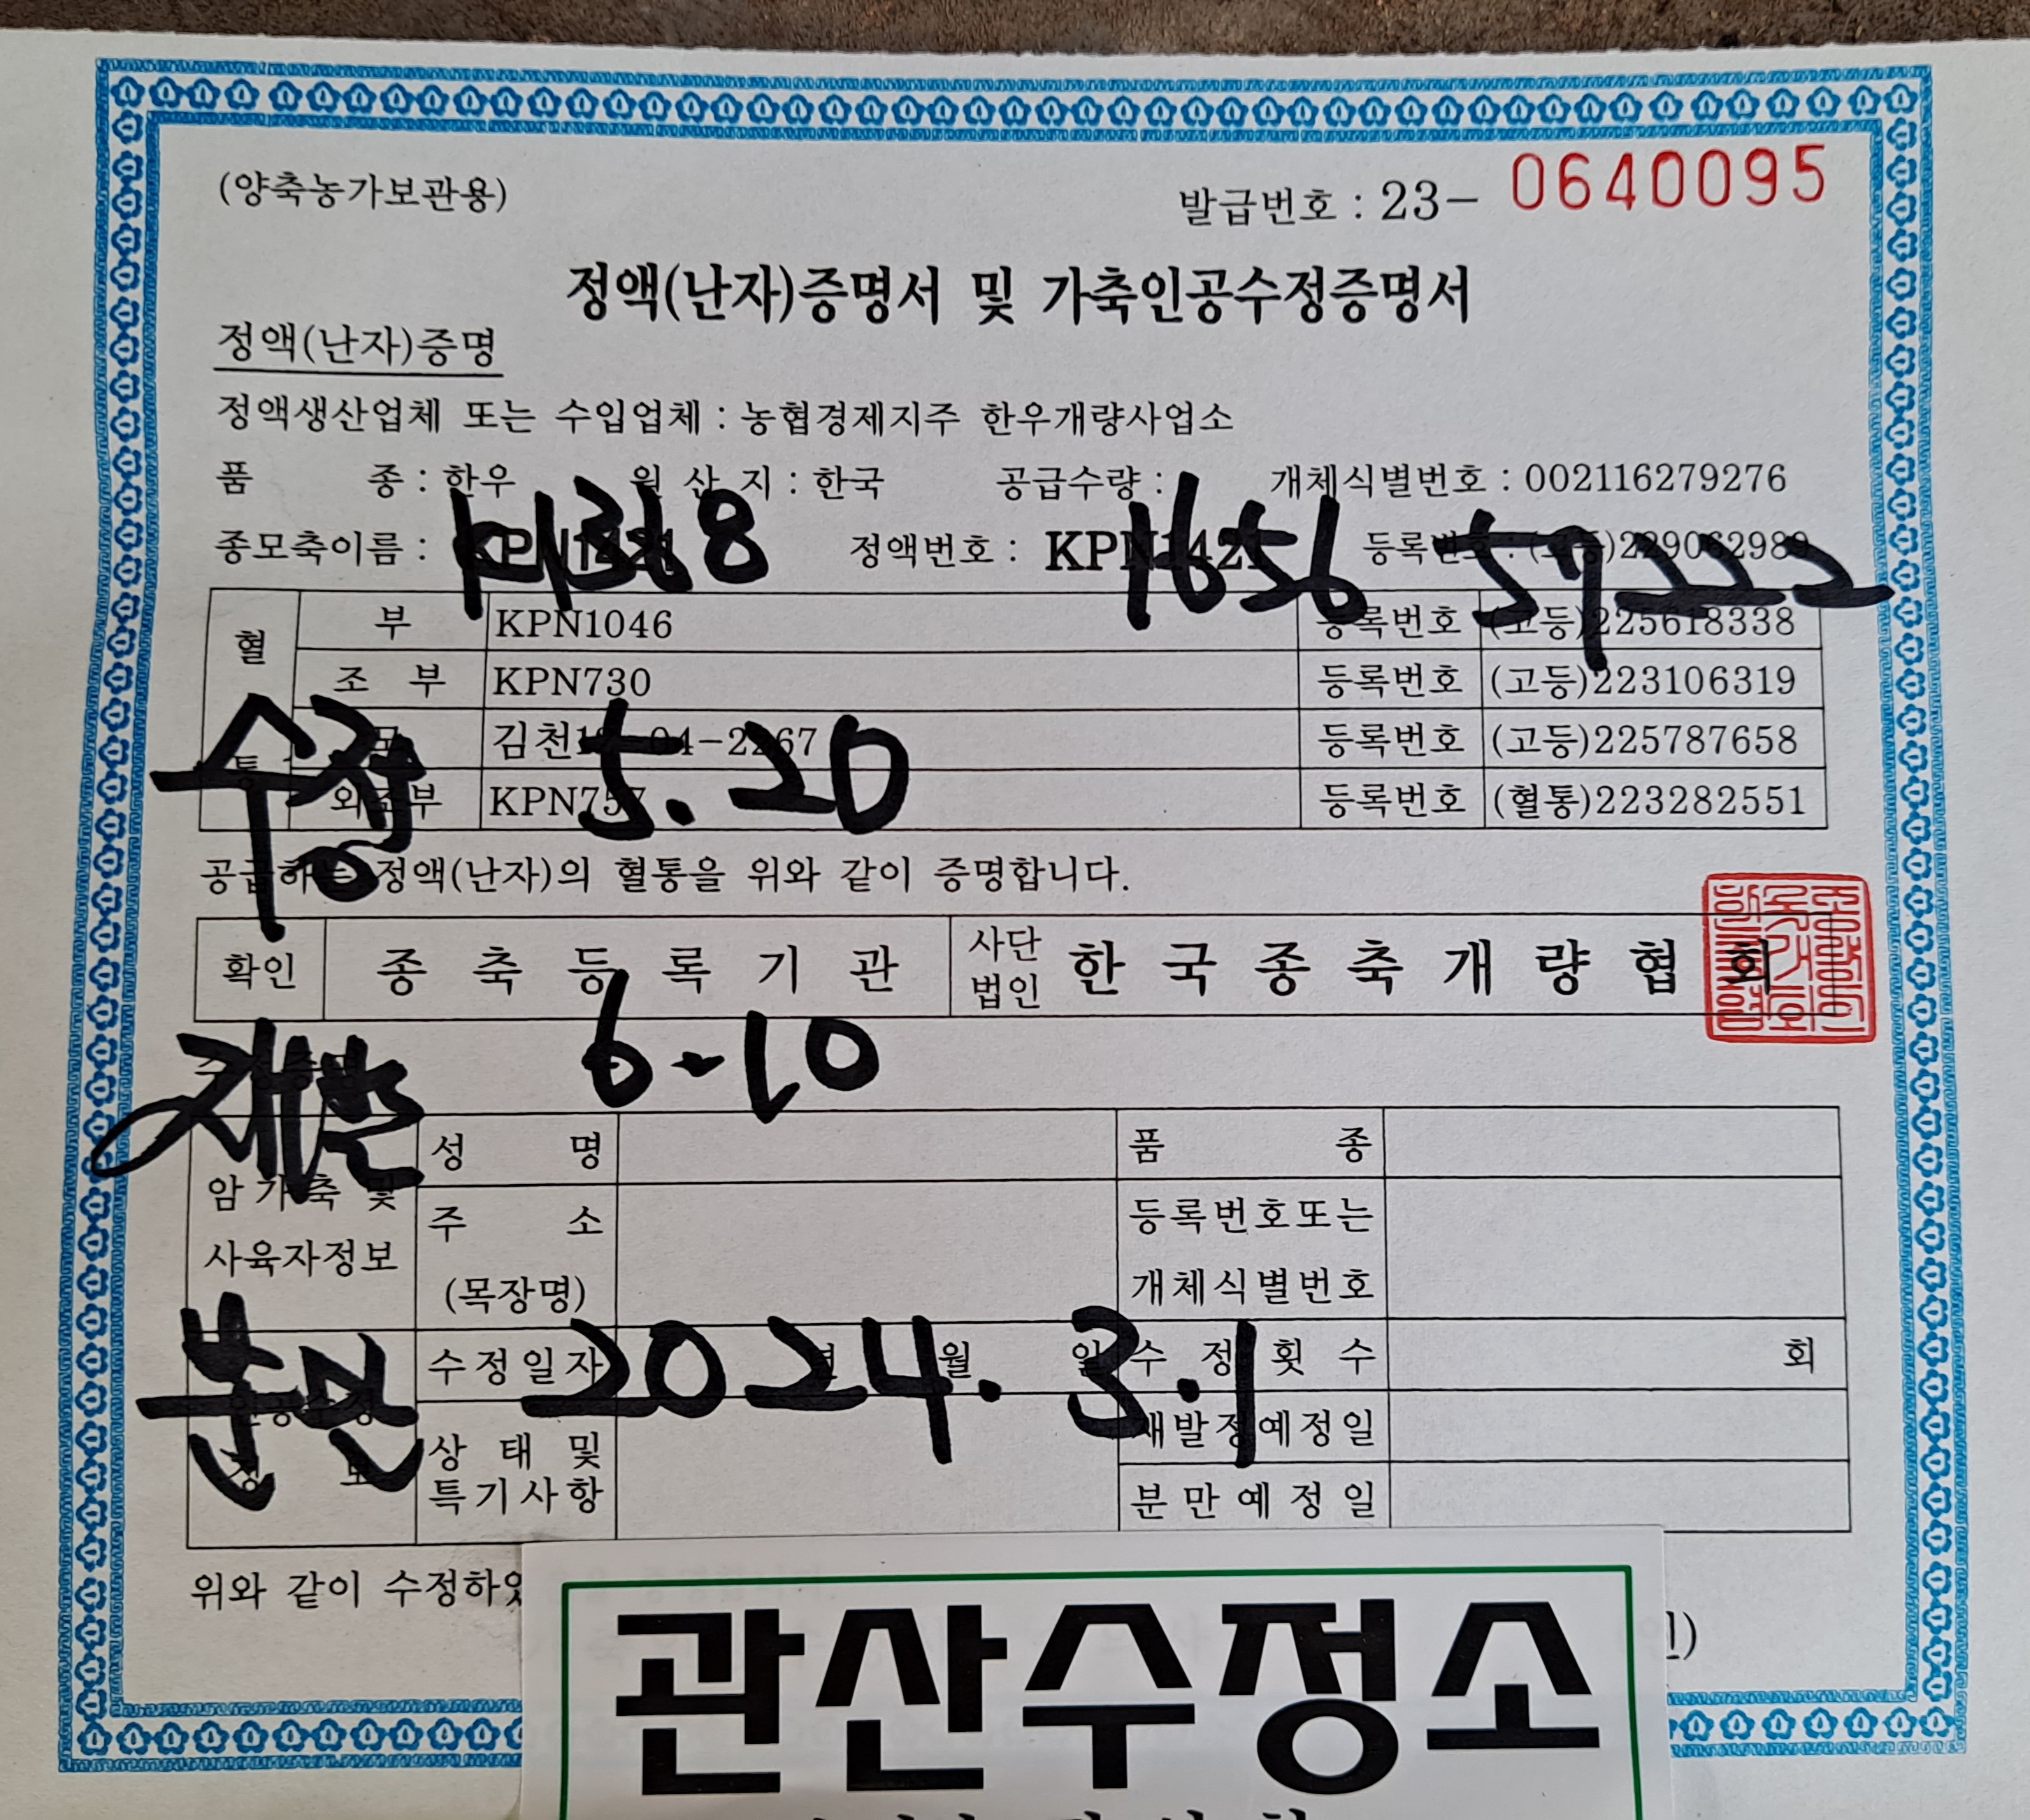 (양축농가보관용)
발급번호 : 23- 0640095
정액(난자)증명서 및 가축인공수정증명서
정액(난자)증명
정액생산업체 또는 수입업체 : 농협경제지주 한우개량사업소
품 종 : 한우 원 산 지 : 한국 공급수량 : 개체식별번호 : 002116279276
종모축이름 : 정액번호 : 등록번호 : (고등)229062989
1656 57222
혈통
부 KPN1046 등록번호 (고등)225618338
조 부 KPN730 등록번호 (고등)223106319
모 등록번호 (고등)225787658
외조부 KPN757 등록번호 (혈통)223282551
수정 5.20
공급하는 정액(난자)의 혈통을 위와 같이 증명합니다.
확인 종축등록기관 사단법인 한국종축개량협회
재발 6-10
암가축 및 사육자정보
성 명 품 종
주 소 (목장명) 등록번호또는 개체식별번호
분만 2024.3.1
수정일자 년 월 일 수 정 횟 수 회
상 태 및 특기사항 재발정예정일
분만예정일
위와 같이 수정하였
관산수정소